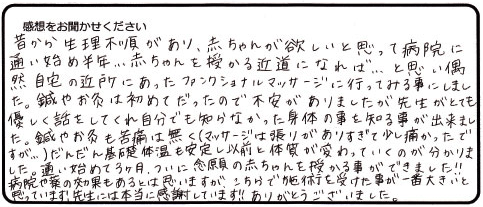 感想をお聞かせください
昔から生理不順があり、赤ちゃんが欲しいと思って病院に
通い始め半年…赤ちゃんを授かる近道になれば…と思い偶
然自宅の近所にあったファンクショナルマッサージに行ってみる事にしまし
た。鍼やお灸は初めてだったので不安がありましたが先生がとても
優しく話をしてくれ自分でも知らなかった身体の事を知る事が出来まし
た。鍼やお灸も苦痛は無く(マッサージは張りがありすぎて少し痛かったで
すが…)だんだん基礎体温も安定し以前と体質が変わっていくのが分かりま
した。通い始めて3か月、ついに念願の赤ちゃんを授かる事ができました!!
病院や薬の効果もあるとは思いますが、こちらで施術を受けた事が一番大きいと
思っています!先生には本当に感謝しています!!ありがとうございました。